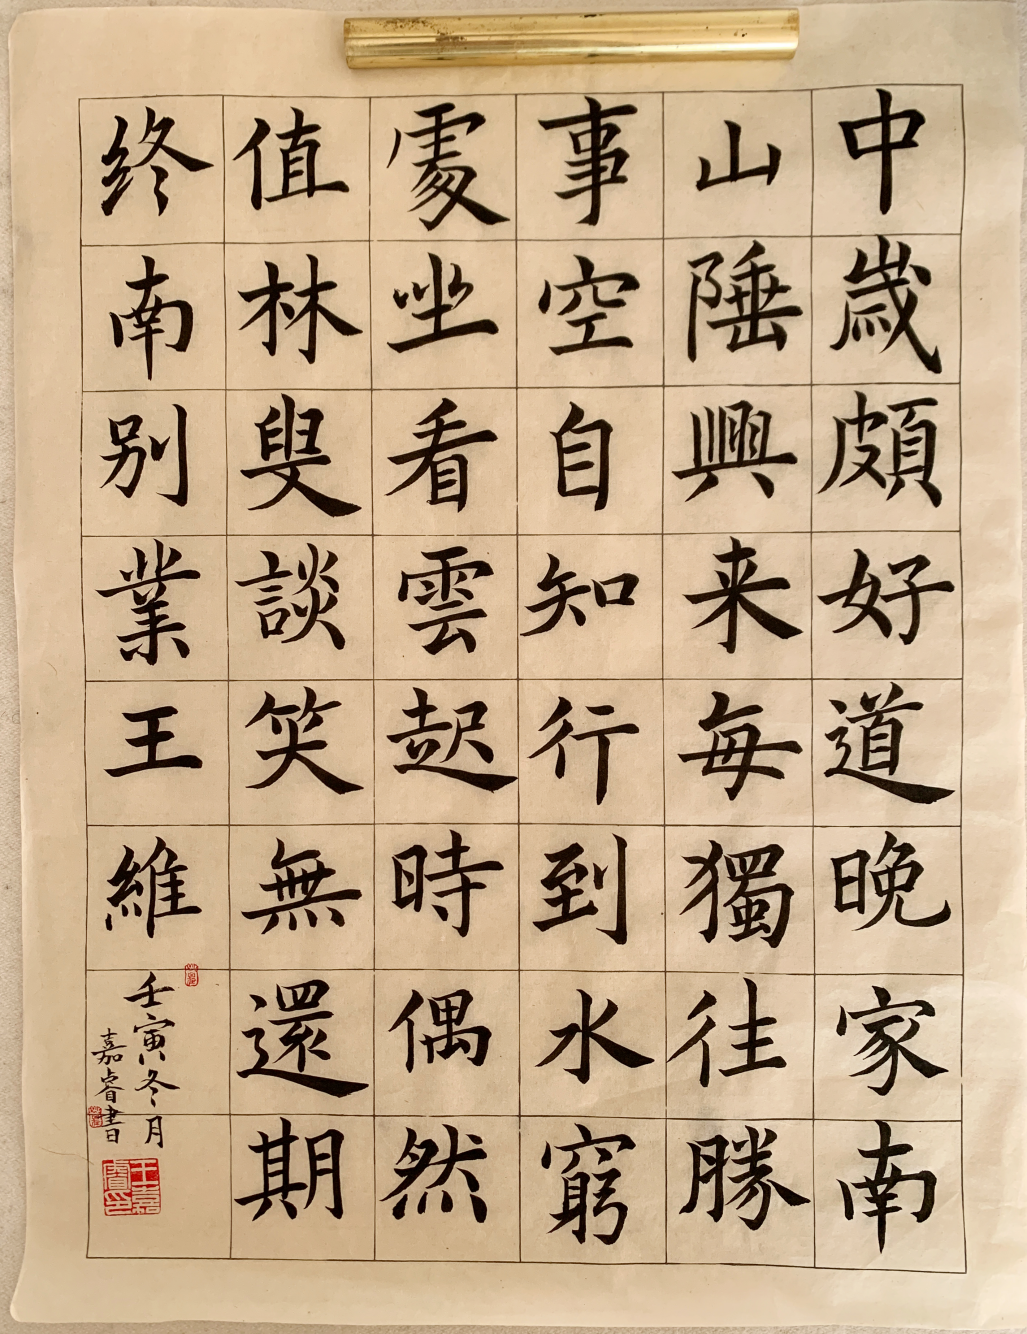 中歲頗好道晚家南
山陲興来每獨往勝
事空自知行到水窮
處坐看雲起時偶然
值林叟談笑無還期
終南别業王維
壬寅冬月
嘉睿書
王嘉睿印